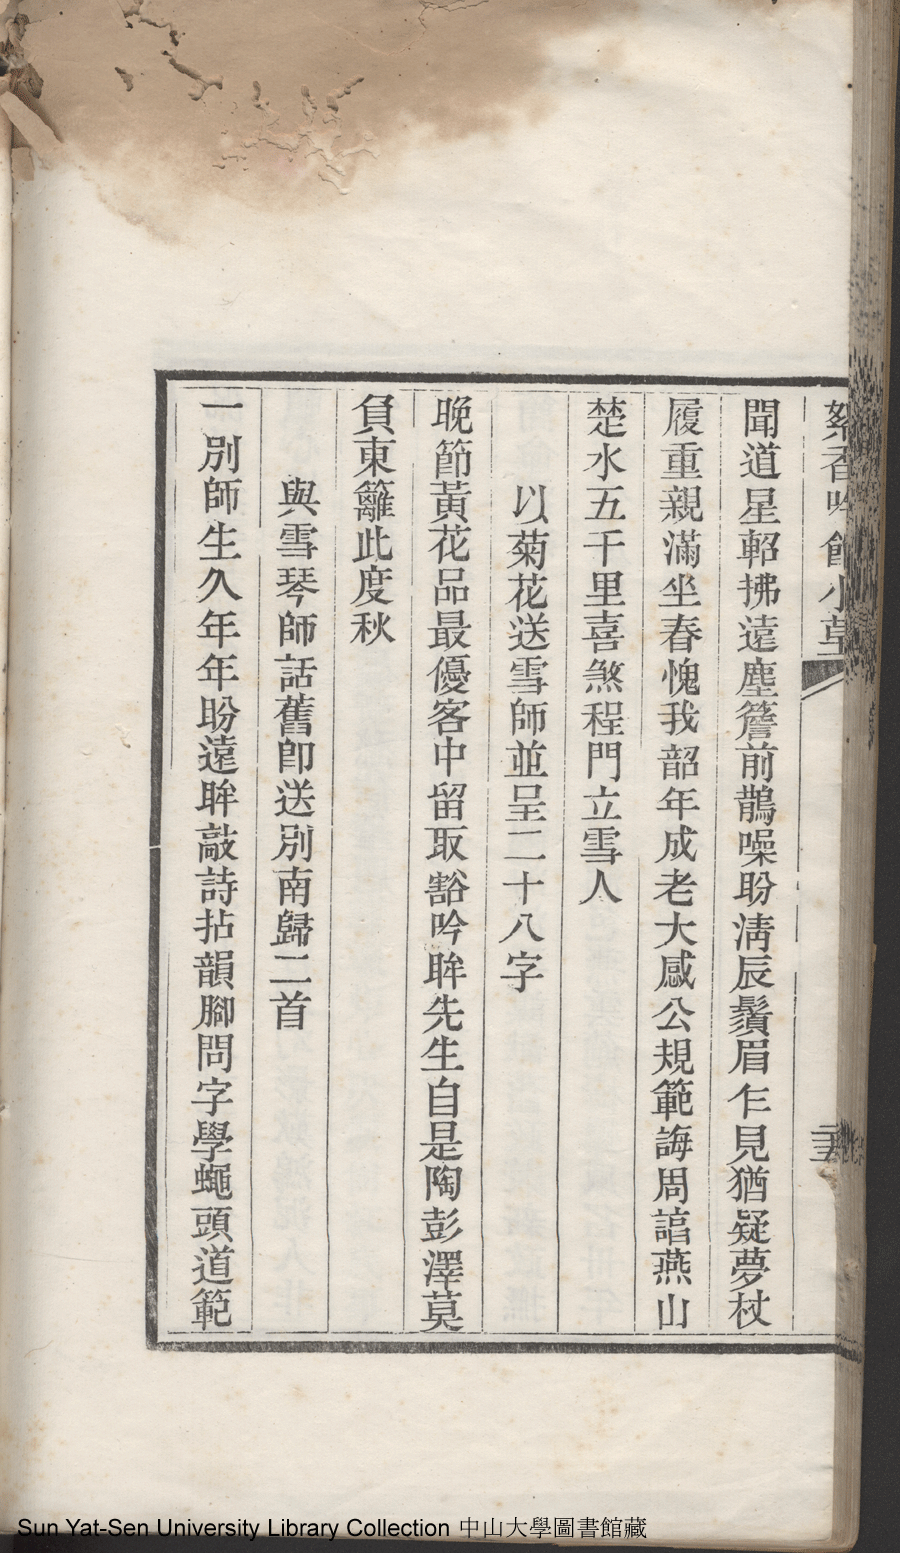 絮香吟館小草
聞道星軺拂遠塵簷前鵲噪盼淸辰鬚眉乍見猶疑夢杖
履重親滿坐春愧我韶年成老大感公規範誨周諮燕山
楚水五千里喜煞程門立雪人
以菊花送雪師並呈二十八字
晚節黃花品最優客中留取豁吟眸先生自是陶彭澤莫
負東籬此度秋
與雪琴師話舊卽送別南歸二首
一別師生久年年盼遠眸敲詩拈韻腳問字學蠅頭道範
Sun Yat-Sen University Library Collection 中山大學圖書館藏